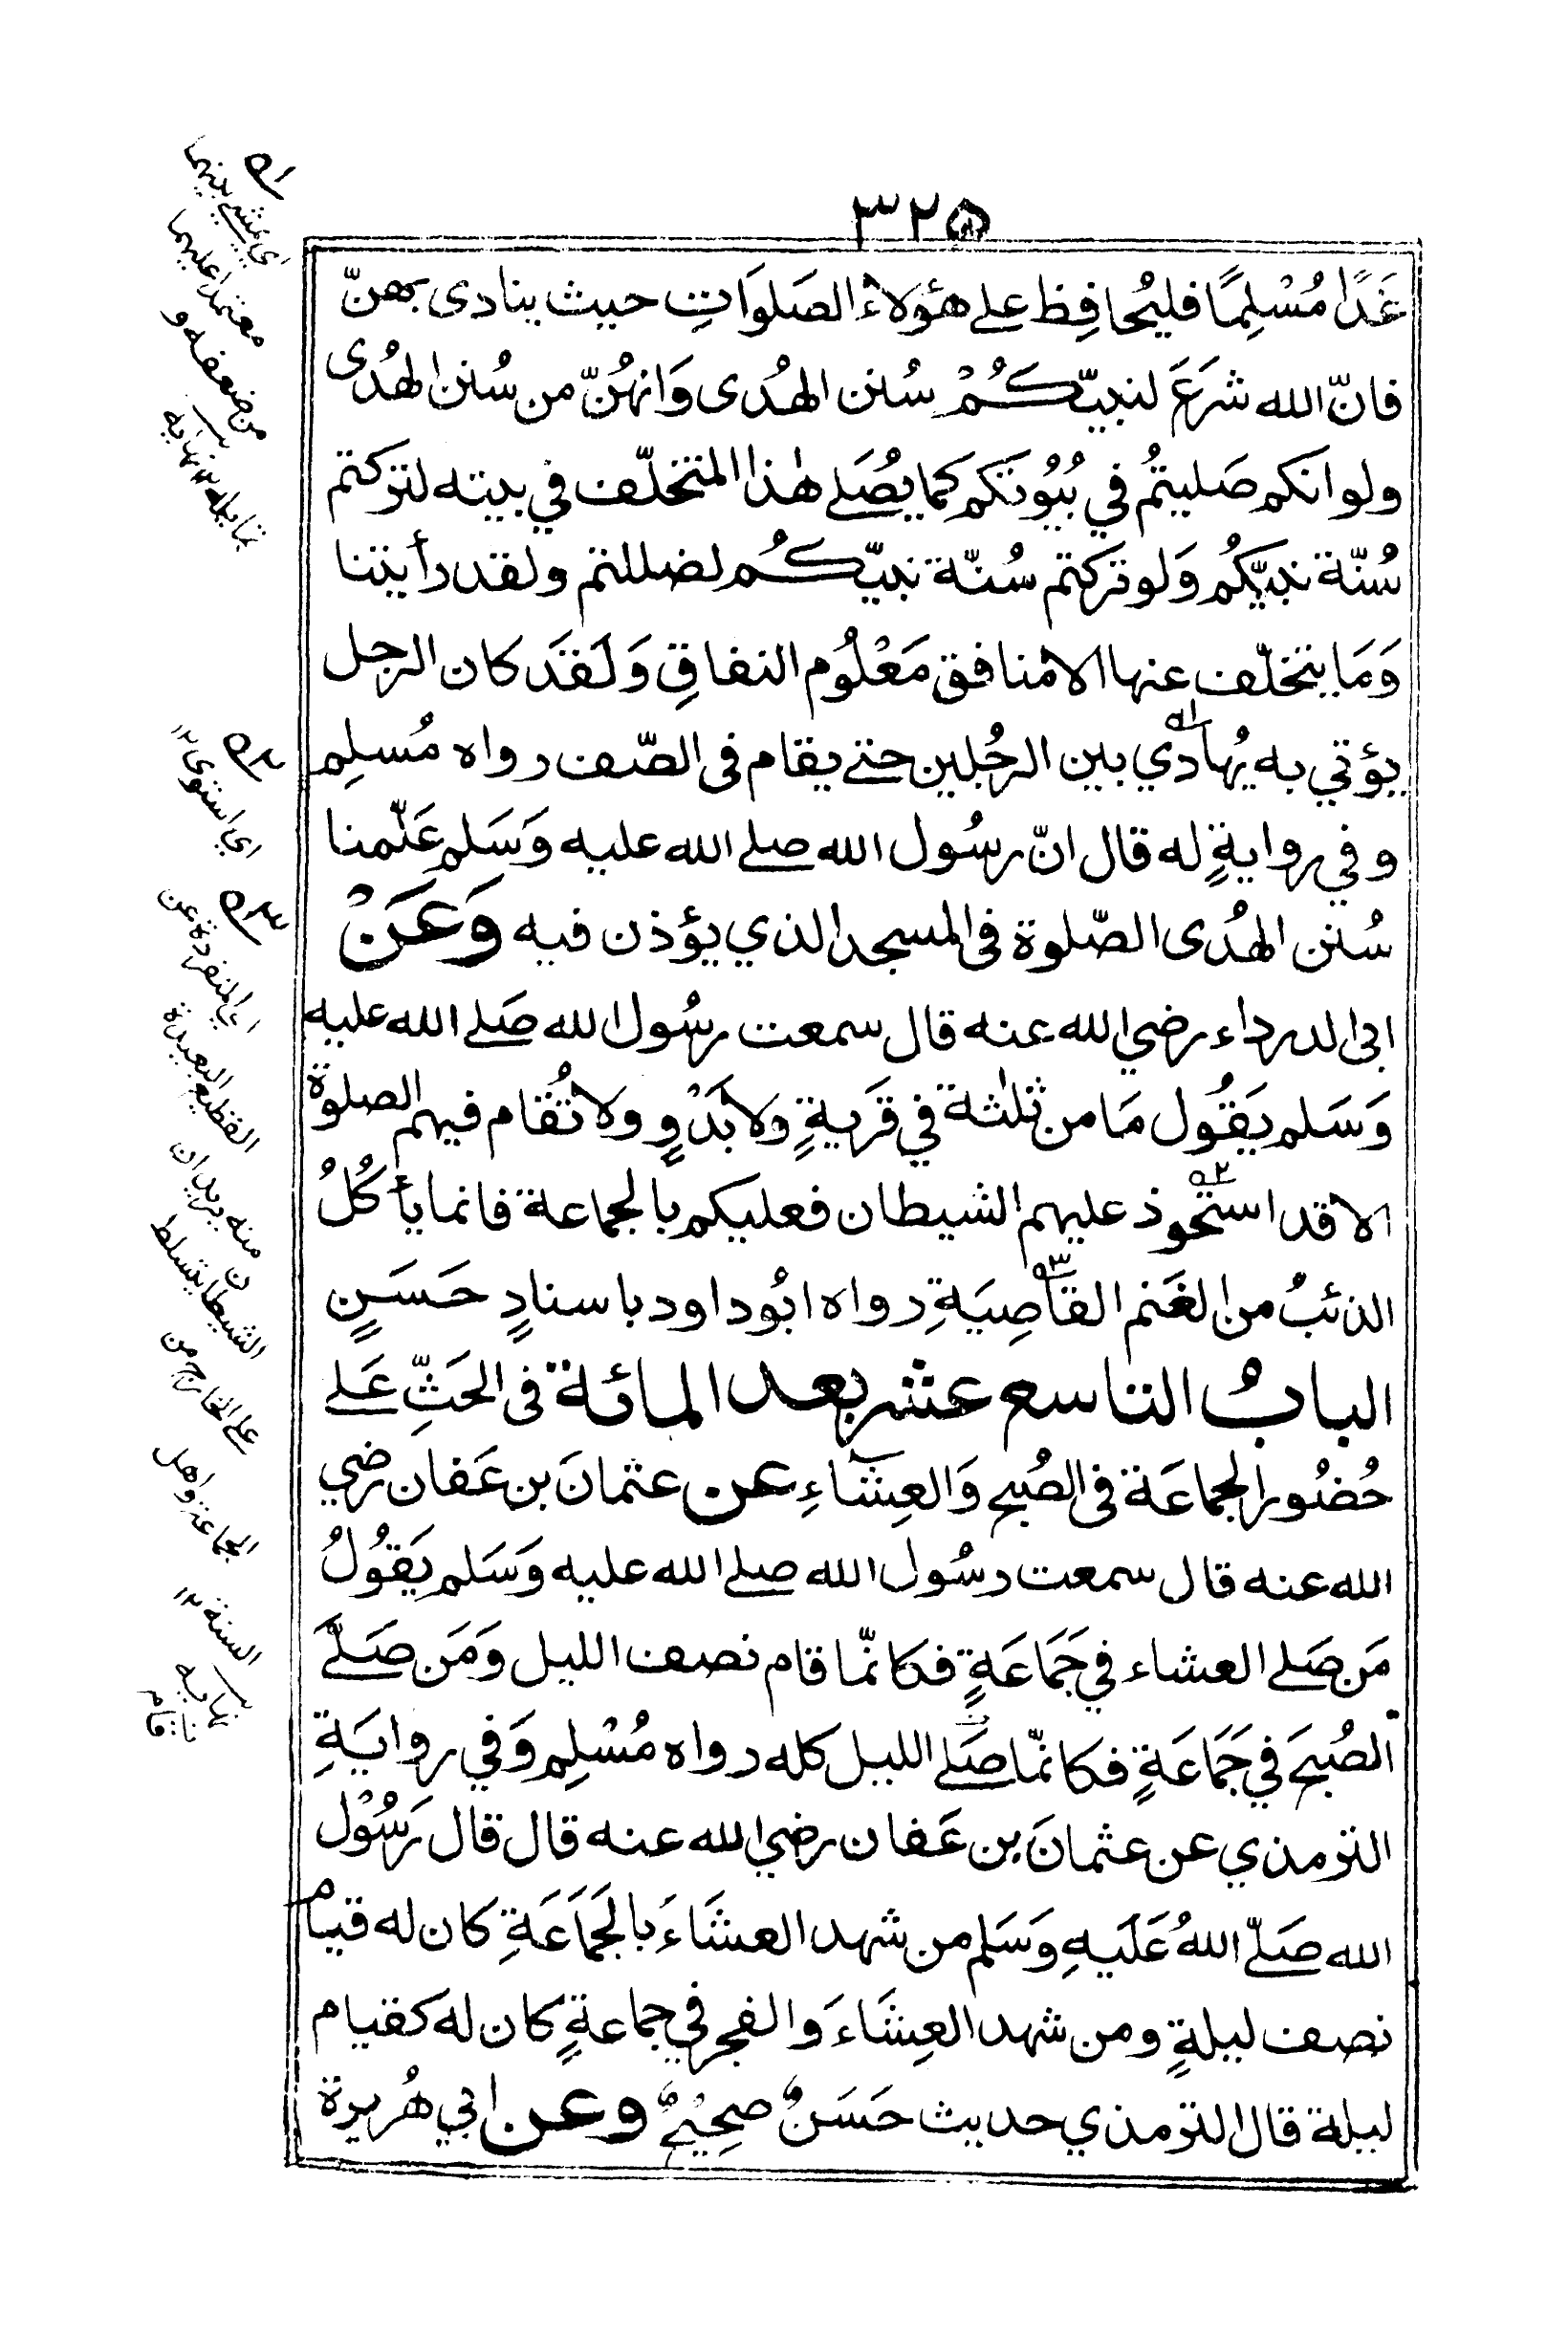 ٣٢٥
غَدًا مُسْلِمًا فليُحافِظ علے هؤلاء الصَلوَاتِ حيث ينادى بهنّ
فانّ الله شرَعَ لنبيّكُمْ سُنن الهُدى وَانهُنّ من سُنن الهُدى
ولو انكم صَليتمُ في بُيُوتكم كما يصُلے هٰذا المتخلّف في بيته لتركتم
سُنّة نبيّكمُ وَلو تركتم سُنّة نبيّكُم لضللتم ولقد رأيتنا
وَمَا يتخلّف عنها الا منافق مَعْلُوم النفاقِ وَلَقدَ كان الرجل
يؤتي به يُهادي بين الرجُلين حتے يقام فى الصّف رواه مُسلِم
وفي روايةٍ له قال انّ رسُول الله صلے الله عليه وَسَلم عَلّمنا
سُنن الهُدى الصّلوة فى المسجد الذي يؤذن فيه وَعَنْ
ابى الدرداء رضي الله عنه قال سمعت رسُول الله صَلے الله عليه
وَسَلم يَقُول مَا من ثلٰثة في قَريةٍ ولا بَدْوٍ ولا تُقام فيهم الصلوة
الا قد استحوذ عليهم الشيطان فعليكم بالجماعة فانما يأكُلُ
الذئبُ من الغَنم القاصِيَةِ رواه ابُو داود باسنادٍ حَسَنٍ
البابُ التاسع عشر بعد المائة فى الحَثِّ عَلے
حُضُور الجماعَة فى الصُبح وَالعِشَاءِ عن عثمانَ بن عَفان رضي
الله عنه قال سمعت رسُول الله صلے الله عليه وَسَلم يَقُولُ
مَن صَلے العشاء في جَمَاعَةٍ فكانّما قام نصف الليل وَمَن صَلّےَ
الصُبحَ في جَمَاعَةٍ فكانّما صَلے الليل كله رواه مُسْلِم وَفي روايَةِ
الترمذي عن عثمانَ بن عَفان رضي الله عنه قال قال رَسُوْل
الله صَلّے اللهُ عَلَيهِ وَسَلم من شهد العشَاءَ بالجَمَاعَةِ كان له قيام
نصف ليلةٍ ومن شهد العِشَاءَ وَالفجر في جماعةٍ كان له كقيام
ليلة قال الترمذي حديث حَسَنٌ صحِيْحٌ وعن ابي هُريرة
ـه١
اي يمشے بينهما
معتمدا عليهما
من ضعفه و
تمايله ١٢ نهايه
ـه٢
اي استوى ١٢
ـه٣
اي المنفردة عن
القطيع البعيدة
منه يريد ان
الشيطان يتسلط
على الخارج من
الجماعة واهل
السنة ١٢
نهايه